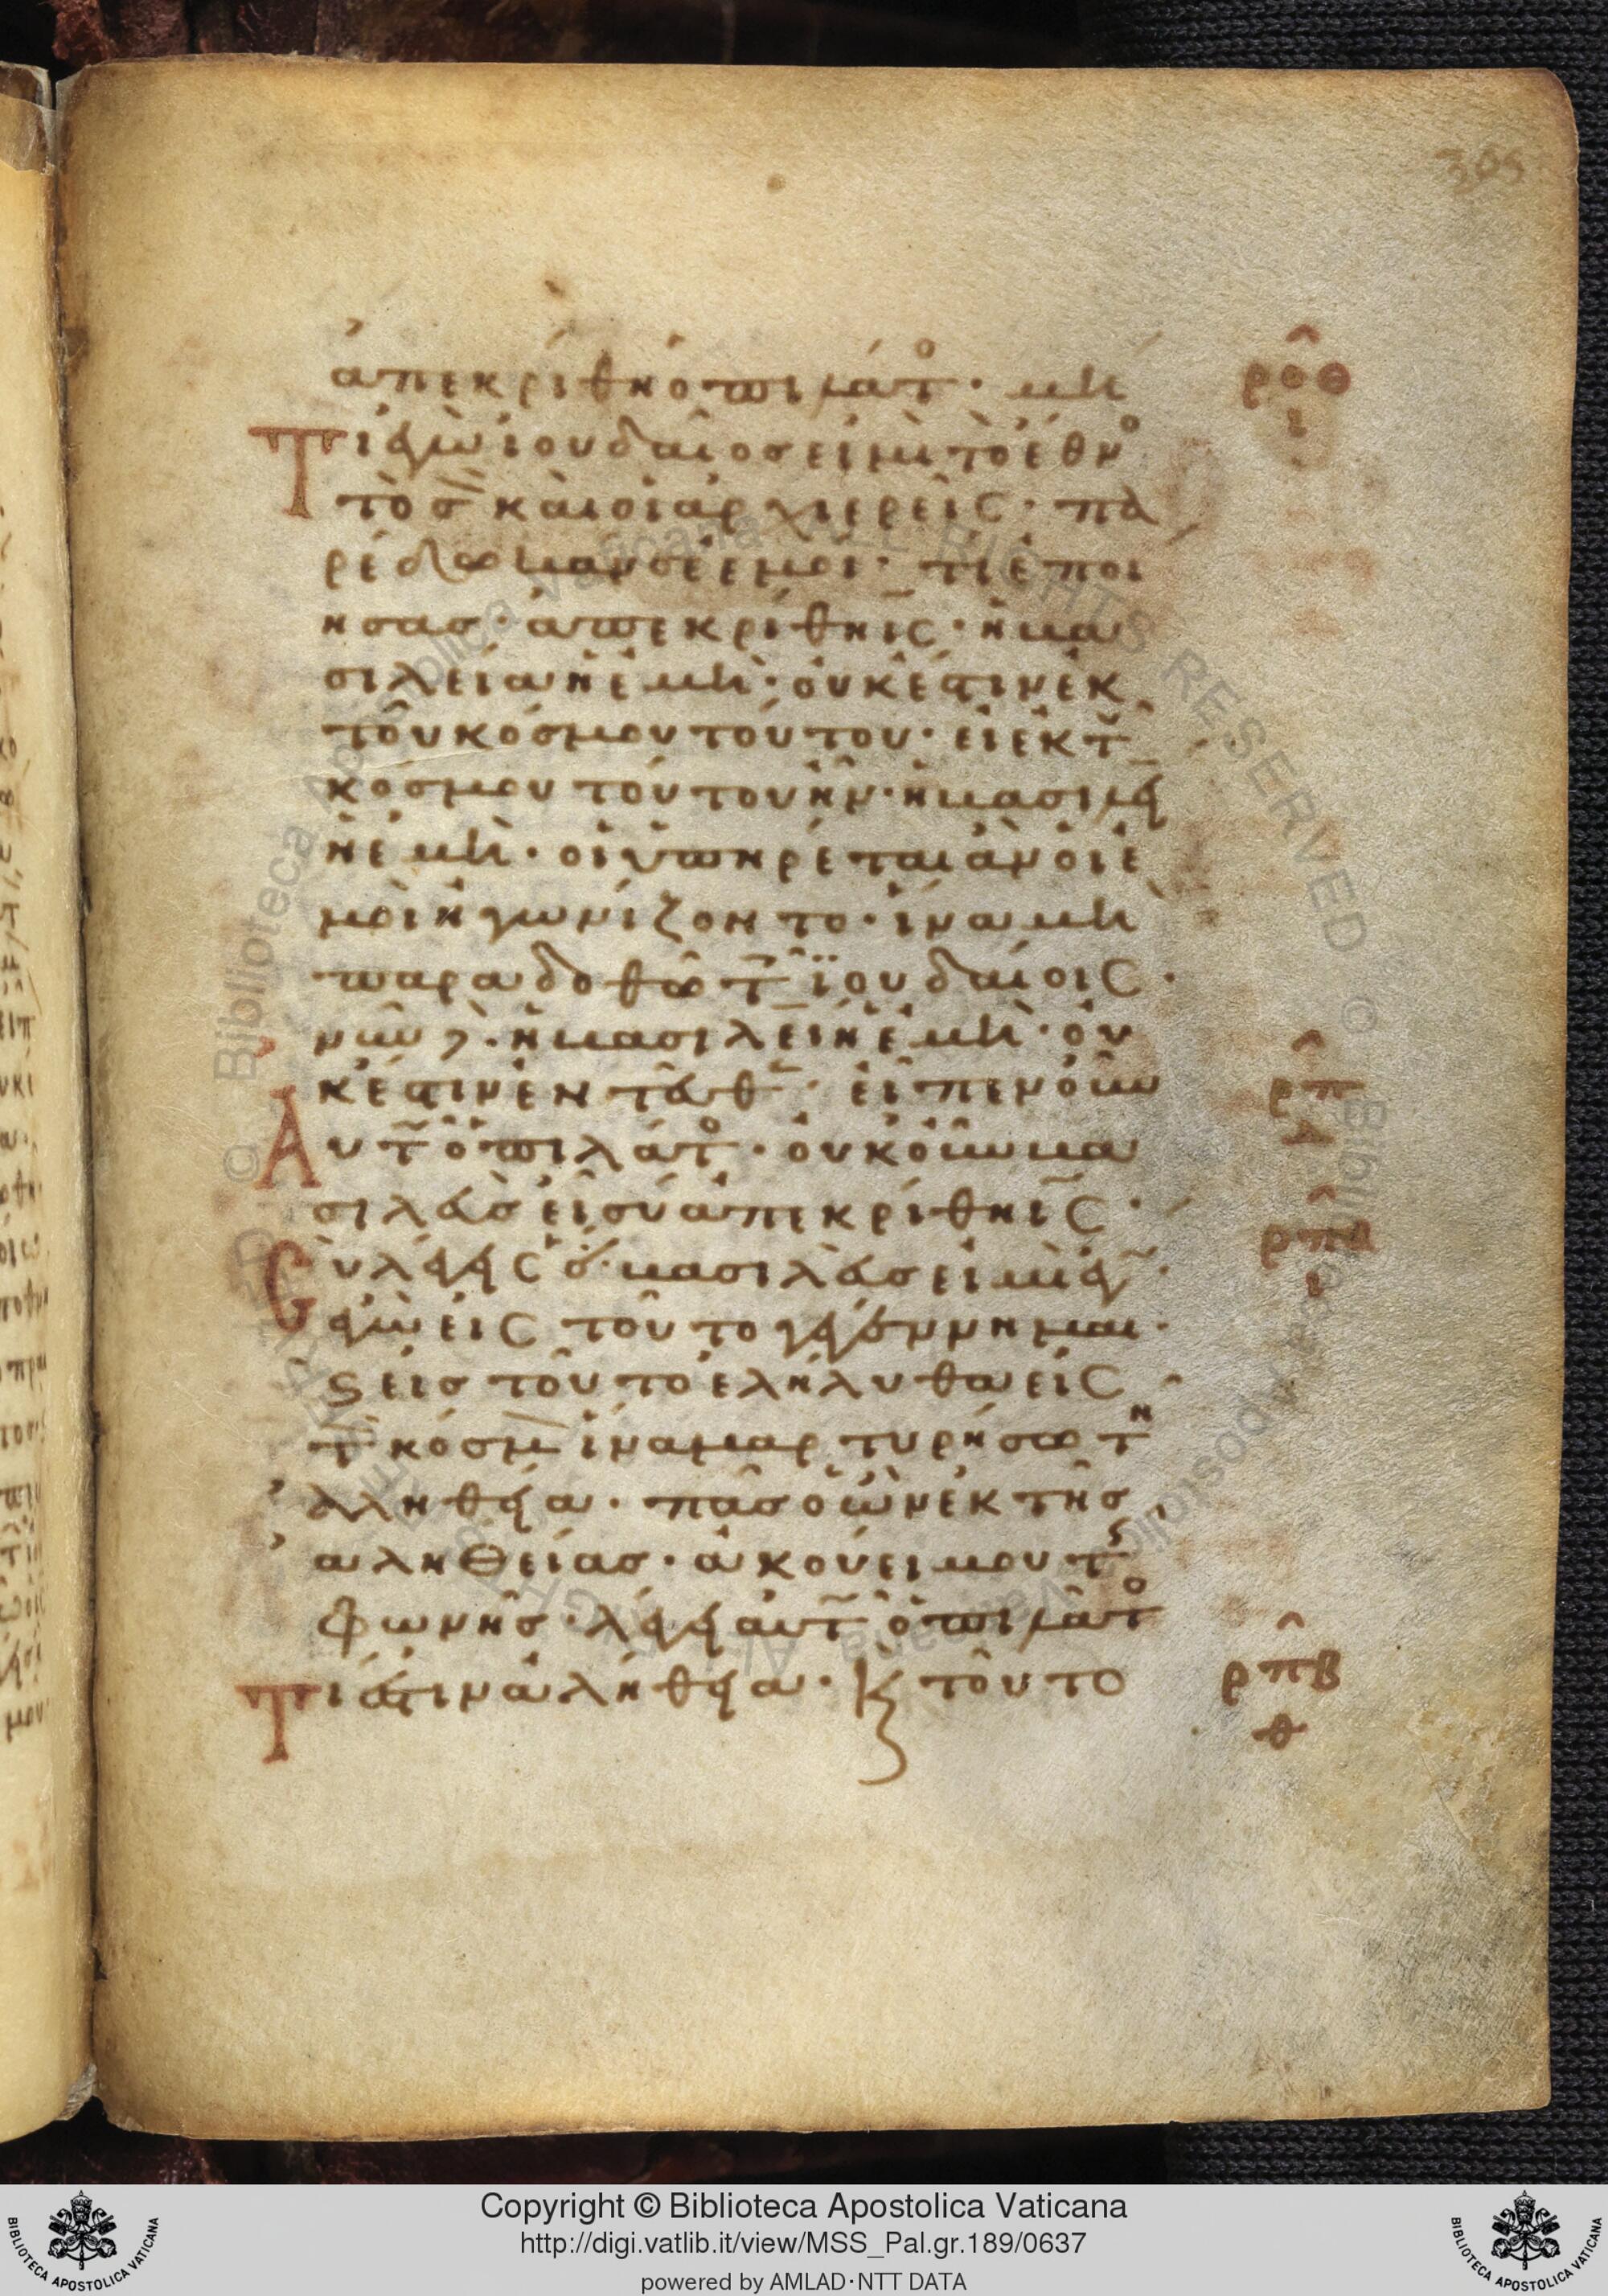 305
ἀπεκρίθη ὁ πιλάτ̊· μὴ
ρο̂θ
ι
Τι ἐγὼ ἰουδαῖος εἰμι τὸ ἔθν̊
τὸ σ̀ καὶ οἱ ἀρχιερεῖς· πα
ρέδωκάν σε ἐμοί· τί ἐποί
ησας· ἀπεκρίθη ις̅· ἡ βα
σιλεία ἡ ἐμὴ· οὐκ ἔστιν ἐκ
τοῦ κόσμου τούτου· εἰ ἐκ τ̆
κόσμου τούτου ἦν· ἡ βασιλεί
ἡ ἐμὴ· οἱ ὑπηρέται ἂν οἱ ἐ
μοὶ ἠγωνίζοντο· ἵνα μὴ
παραδοθῶ τ̃ ϊουδαίοις·
νῦν δ̀· ἡ βασιλεί ἡ ἐμὴ· οὐ
κ ἔστιν ἐντεῦθ̅· εἶπεν οὖν
ρ̂π
Αυτ̃ ὁ πιλάτ̊· οὐκοῦν βα
σιλεὺς εἶ σύ ἀπεκρίθη ις̅·
ρ̂πα
ι
Cὺ λέγεις ὅ· βασιλεύς εἰμι ἐγ̃·
ἐγὼ εἰς τοῦτο γεγέννημαι·
ϛ εἰς τοῦτο ἐλήλυθα εἰς
τ̀ κόσμ̀ ἵνα μαρτυρήσω τ̽
ἀληθεία· πᾶς ὁ ὢν ἐκ τῆς
ἀληθείας· ἀκούει μου τ̃
φωνῆς· λέγει αὐτ̃ ὁ πιλάτ̊
Τι ἐστιν ἀλήθεια· κ τοῦτο
ρ̂πβ
θ
Copyright © Biblioteca Apostolica Vaticana
http://digi.vatlib.it/view/MSS_Pal.gr.189/0637
powered by AMLAD·NTT DATA
BIBLIOTECA APOSTOLICA VATICANA
BIBLIOTECA APOSTOLICA VATICANA